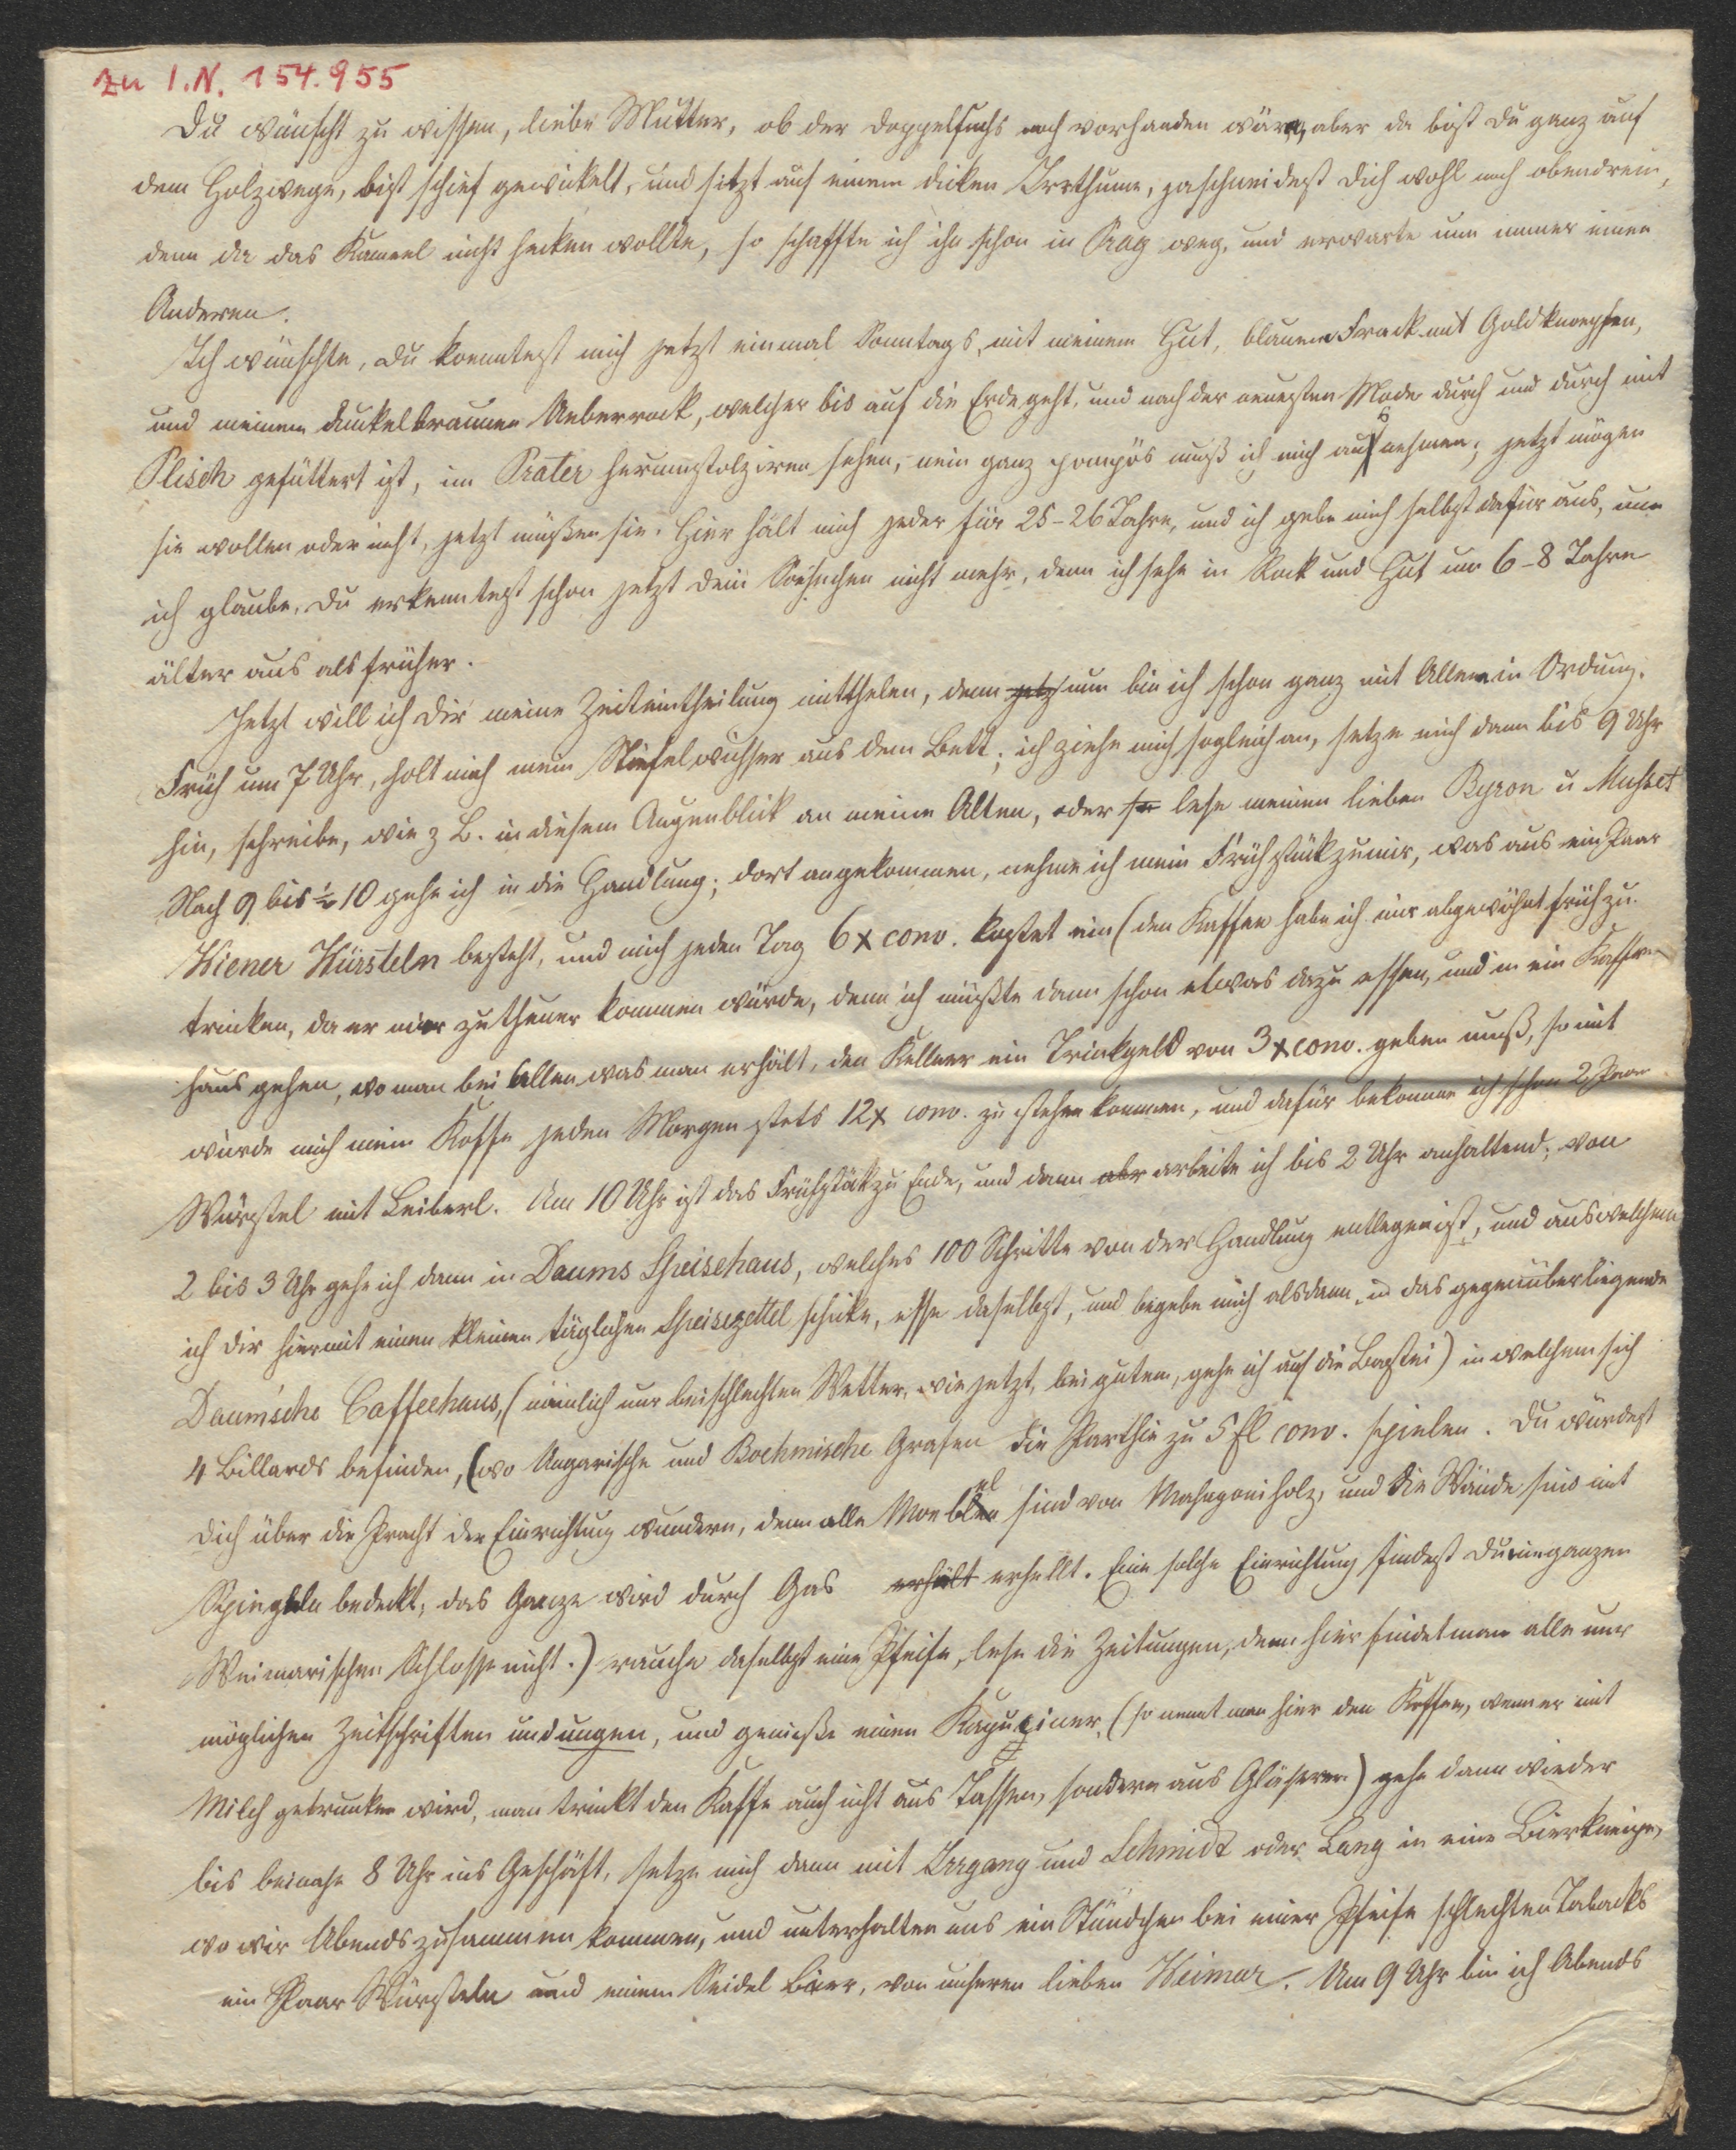 zu I.N. 154.955
Du wünscht zu wissen, liebe Mutter, ob der Doppelfuchs noch vorhanden wäre, aber da bist Du ganz auf
dem Holzwege, bist schief gewickelt, und sitzt auf einem dicken Irrthume, zaschneidest Dich wohl noch obendrein,
denn da das Kameel nicht hecken wollte, so schaffte ich ihn schon in Prag weg, und erwarte nun immer einen
Anderen.
Ich wünschte, Du koenntest mich jetzt einmal Sonntags, mit meinem Hut, blauem Frack mit Goldknoepfen,
und meinem dunkelbraunen Ueberrock, welcher bis auf die Erde geht, und nach der neuesten Mode durch und durch mit
Plisch gefüttert ist, im Prater herumstolziren sehen, nein ganz pompös muß ich mich ausnehmen; jetzt mögen
sie wollen oder nicht, jetzt müßen sie. Hier hält mich jeder für 25-26 Jahre, und ich gebe mich selbst dafür aus, nun
ich glaube, Du erkenntest schon jetzt Dein Soehnchen nicht mehr, denn ich sehe in Rock und Hut um 6-8 Jahre
älter aus als früher.
Jetzt will ich Dir meine Zeiteintheilung mitthelen, denn jetz nun bin ich schon ganz mit Allem in Ordnung.
Früh um 7 Uhr, holt mich mein Stiefelwichser aus dem Bett; ich ziehe mich sogleich an, setze mich dann bis 9 Uhr
hin, schreibe, wie z B. in diesem Augenblick an meine Alten, oder lese meinen lieben Byron u Musset
Nach 9 bis ½ 10 gehe ich in die Handlung; dort angekommen, nehme ich mein Frühstük zu mir, was aus ein Paar
Wiener Würsteln besteht, und mich jeden Tag 6x conv. kostet ein (den Kaffee habe ich mir abgewöhnt früh zu
trinken, da er mir zu theuer kommen würde, denn ich müßte dann schon etwas dazu essen, und in ein Kaffee
haus gehen, wo man bei Allen was man erhält, den Kellner ein Trinkgeld von 3x conv. geben muß, somit
würde mich mein Kaffe jeden Morgen stets 12x conv. zu stehen kommen, und dafür bekomme ich schon 2 Paar
Würstel mit Leiberl. Um 10 Uhr ist das Frühstük zu Ende, und dann abr arbeite ich bis 2 Uhr anhaltend; von
2 bis 3 Uhr gehe ich dann in Daums Speisehaus, welches 100 Schritte von der Handlung entlegen ist, und aus welchem
ich Dir hiermit einen kleinen täglichen Speisezettel schicke, esse daselbst, und begebe mich alsdann in das gegenüberliegende
Daum'sche Caffeehaus, (nämlich nur bei schlechten Wetter, wie jetzt, bei gutem, gehe ich auf die Bastei) in welchem sich
4 Billards befinden, (wo Ungarische und Boehmische Grafen die Parthie zu 5 fl conv. spielen. Du würdest
Dich über die Pracht der Einrichtung wundern, denn alle Moebel sind von Mahagoniholz, und die Wände sind mit
Spiegeln bedeckt, das Ganze wird durch Gas erhält erhellt. Eine solche Einrichtung findest Du im ganzen
Weimarischen Schlosse nicht.) rauche daselbst eine Pfeife, lese die Zeitungen, denn hier findet man alle nur
möglichen Zeitschriften und ungen, und genieße einen Kapuziner, (so nennt man hier den Kaffee, wenn er mit
Milch getrunken wird, man trinkt den Kaffe auch nicht aus Tassen, sondern aus Gläsern) gehe dann wieder
bis beinahe 8 Uhr ins Geschäft, setze mich dann mit Irrgang und Schmidt oder Lang in eine Bierkneipe,
wo wir Abends zusammen kommen, und unterhalten uns ein Stündchen bei einer Pfeife schlechten Tabacks
ein Paar Würsteln und einem Seidel Bier, von unseren lieben Weimar. Um 9 Uhr bin ich Abends